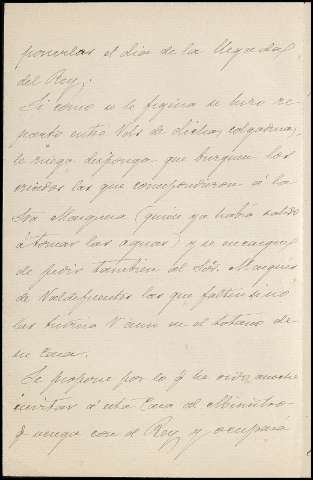 ponerlas el dia de la llegada
del Rey.
Si como se le figura se hizo re-
parto entre Vds de dichas colgaduras,
le ruega disponga que busquen los
criados las que correspondieron á la
Sra Marquesa (quien ya habrá salido
á tomar las aguas) y se encargue
de pedir tambien al Sór. Marqués
de Valdefuentes las que falten si nó
las tuviera V. aun en el sotano de
su Casa.
Se propone por lo q he oido anoche
invitar á esta Casa al Ministro
q venga con el Rey, y ocupará